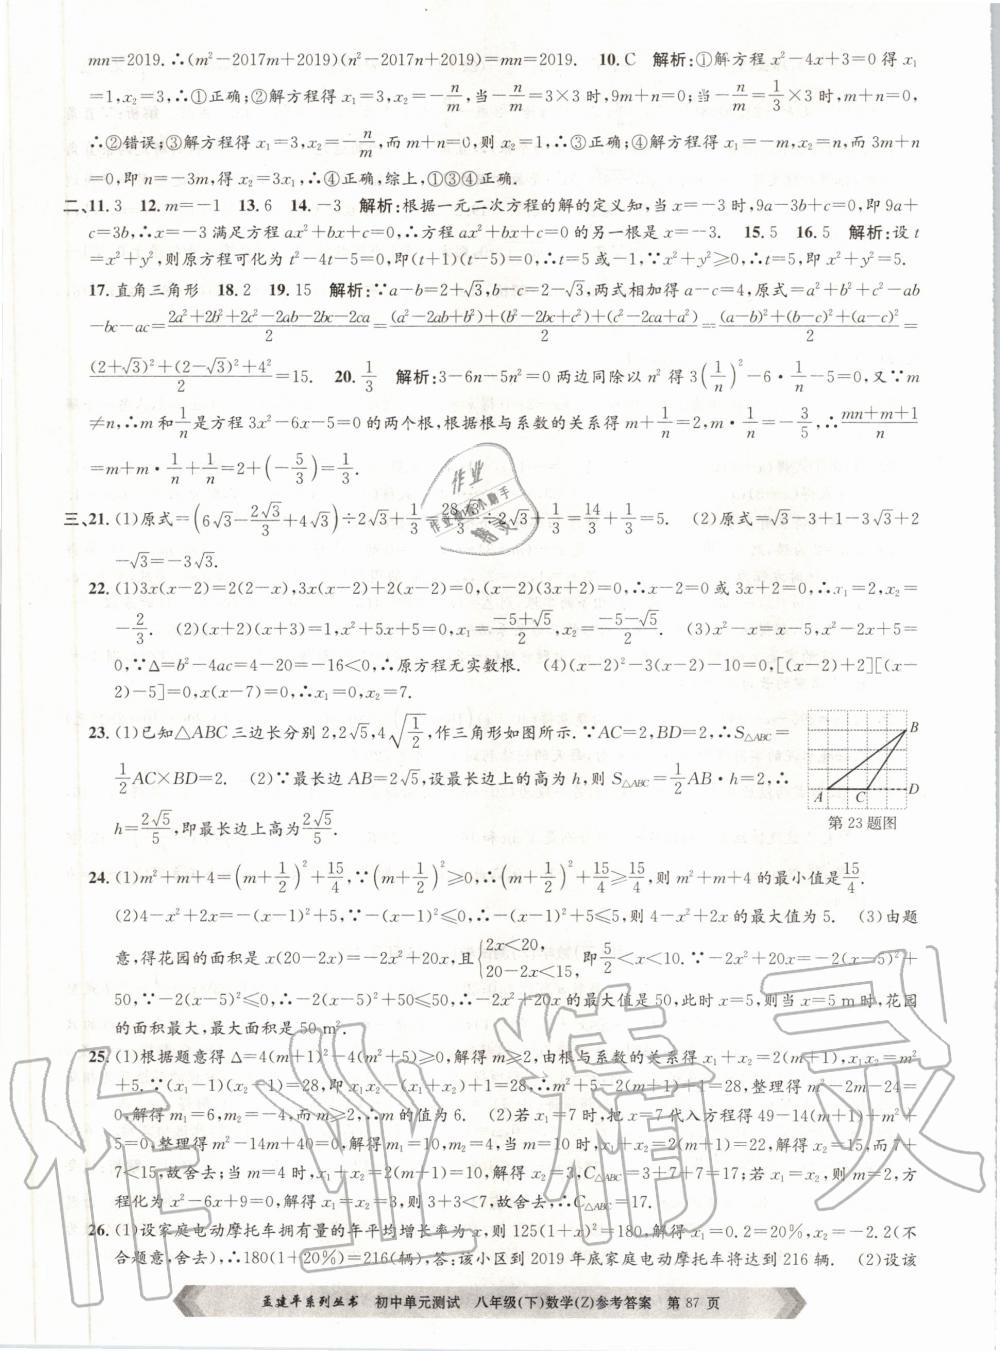 mn=2019.∴(m²-2017m+2019)(n²-2017n+2019)=mn=2019. 10.C 解析:①解方程 x²-4x+3=0 得 x₁
=1,x₂=3,∴①正确;②解方程得 x₁=3,x₂=-n/m,当-n/m=3×3 时,9m+n=0;当-n/m=1/3×3 时,m+n=0,
∴②错误;③解方程得 x₁=3,x₂=-n/m,而 m+n=0,则 x₂=1,∴③正确;④解方程得 x₁=-m,x₂=n,而 3m+n
=0,即 n=-3m,得 x₂=3x₁,∴④正确,综上,①③④正确.
二、11.3 12.m=-1 13.6 14.-3 解析:根据一元二次方程的解的定义知,当 x=-3 时,9a-3b+c=0,即 9a+
c=3b,∴x=-3 满足方程 ax²+bx+c=0,∴方程 ax²+bx+c=0 的另一根是 x=-3. 15.5 16.5 解析:设 t
=x²+y²,则原方程可化为 t²-4t-5=0,即(t+1)(t-5)=0,∴t=5 或-1,∵x²+y²≥0,∴t=5,即 x²+y²=5.
17.直角三角形 18.2 19.15 解析:∵a-b=2+√3,b-c=2-√3,两式相加得 a-c=4,原式=a²+b²+c²-ab
-bc-ac=(2a²+2b²+2c²-2ab-2bc-2ca)/2=((a²-2ab+b²)+(b²-2bc+c²)+(c²-2ca+a²))/2=((a-b)²+(b-c)²+(a-c)²)/2=
((2+√3)²+(2-√3)²+4²)/2=15. 20.1/3 解析:3-6n-5n²=0 两边同除以 n² 得 3(1/n)²-6·1/n-5=0,又∵m
≠n,∴m 和 1/n 是方程 3x²-6x-5=0 的两个根,根据根与系数的关系得 m+1/n=2,m·1/n=-5/3,∴(mn+m+1)/n
=m+m·1/n+1/n=2+(-5/3)=1/3.
三、21.(1)原式=(6√3-2√3/3+4√3)÷2√3+1/3=28√3/3÷2√3+1/3=14/3+1/3=5. (2)原式=√3-3+1-3√3+2
-√3=-3√3.
22.(1)3x(x-2)=2(2-x),3x(x-2)+2(x-2)=0,(x-2)(3x+2)=0,∴x-2=0 或 3x+2=0,∴x₁=2,x₂=
-2/3. (2)(x+2)(x+3)=1,x²+5x+5=0,x₁=(-5+√5)/2,x₂=(-5-√5)/2. (3)x²-x=5x-5-4,x²-6x+5=
0,∵Δ=b²-4ac=4-20=-16<0,∴原方程无实数根. (4)(x-2)²-3(x-2)-10=0,[(x-2)+2][(x-
2)-5]=0,x(x-7)=0,∴x₁=0,x₂=7.
23.(1)已知△ABC 三边长分别 2,2√5,4√(1/2),作三角形如图所示.∵AC=2,BD=2,∴S△ABC=
1/2AC×BD=2. (2)∵最长边 AB=2√5,设最长边上的高为 h,则 S△ABC=1/2AB·h=2,∴
h=2√5/5,即最长边上高为2√5/5.
B
A C D
第 23 题图
24.(1)m²+m+4=(m+1/2)²+15/4,∵(m+1/2)²≥0,∴(m+1/2)²+15/4≥15/4,则 m²+m+4 的最小值是15/4.
(2)4-x²+2x=-(x-1)²+5,∵-(x-1)²≤0,∴-(x-1)²+5≤5,则 4-x²+2x 的最大值为 5. (3)由题
意,得花园的面积是 x(20-2x)=-2x²+20x,且{2x<20, 20-2x<15, 即5/2<x<10.∵-2x²+20x=-2(x-5)²+
50,∵-2(x-5)²≤0,∴-2(x-5)²+50≤50,∴-2x²+20x 的最大值是 50,此时 x=5,则当 x=5 m 时,花园
的面积最大,最大面积是 50 m².
25.(1)根据题意得 Δ=4(m+1)²-4(m²+5)≥0,解得 m≥2,由根与系数的关系得 x₁+x₂=2(m+1),x₁x₂=m²
+5.∵(x₁-1)(x₂-1)=28,即 x₁x₂-(x₁+x₂)+1=28,∴m²+5-2(m+1)+1=28,整理得 m²-2m-24=
0,解得 m₁=6,m₂=-4,而 m≥2,∴m 的值为 6. (2)若 x₁=7 时,把 x=7 代入方程得 49-14(m+1)+m²+
5=0,整理得 m²-14m+40=0,解得 m₁=10,m₂=4,当 m=10 时,x₁+x₂=2(m+1)=22,解得 x₂=15,而 7+
7<15,故舍去;当 m=4 时,x₁+x₂=2(m+1)=10,解得 x₂=3,C△ABC=3+7+7=17;若 x₁=x₂,则 m=2,方
程化为 x²-6x+9=0,解得 x₁=x₂=3,则 3+3<7,故舍去,∴C△ABC=17.
26.(1)设家庭电动摩托车拥有量的年平均增长率为 x,则 125(1+x)²=180,解得 x₁=0.2=20%,x₂=-2.2(不
合题意,舍去),∴180(1+20%)=216(辆),答:该小区到 2019 年底家庭电动摩托车将达到 216 辆. (2)设该
孟建平系列丛书 初中单元测试 八年级(下)数学(Z)参考答案 第 87 页
作业精灵